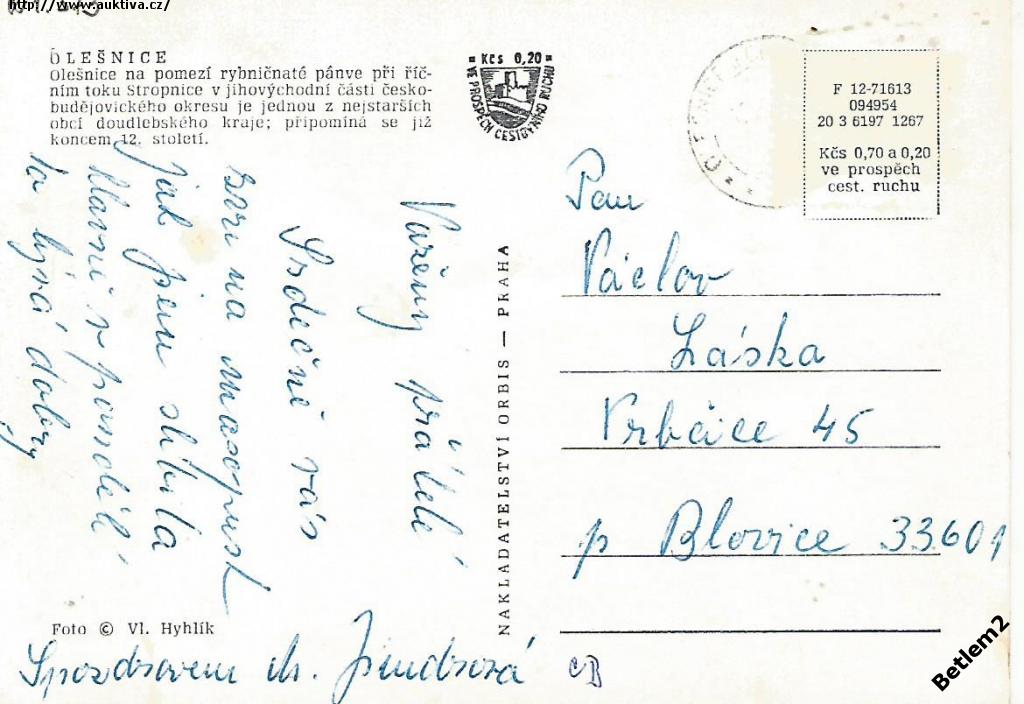 http://www.auktiva.cz/
OLEŠNICE
Olešnice na pomezí rybničnaté pánve při říč-
ním toku Stropnice v jihovýchodní části česko-
budějovického okresu je jednou z nejstarších
obcí doudlebského kraje; připomíná se již
koncem 12. století.
Kčs 0,20
VE PROSPĚCH CESTOVNÍHO RUCHU
F 12-71613
094954
20 3 6197 1267
Kčs 0,70 a 0,20
ve prospěch
cest. ruchu
Vážení přátelé
Srdečně vás
zvu na masopust
jak jsem slíbila
hlavně v pondělí
to bývá dobrý
S pozdravem M. Jindrová
NAKLADATELSTVÍ ORBIS — PRAHA
Pan
Václav
Láska
Vrbčice 45
p Blovice 33601
Foto © Vl. Hyhlík
Betlem2